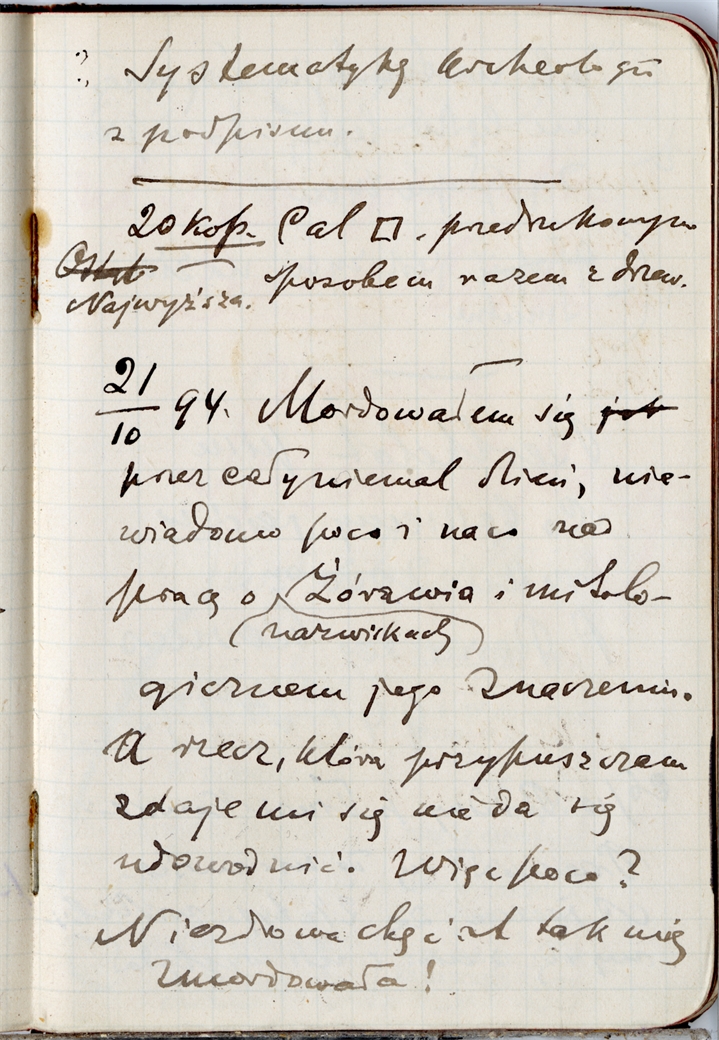 :) Systematykę Archeologii
z podpisem.
20 Kop. Cal □. przedrukowym
sposobem razem z drzew.
Najwyższa.
21/10 94. Mordowałem się jak
przez cały niemal dzień, nie-
wiadomo poco i naco nad
pracą o Żórawia i mitolo-
(nazwiskach)
gicznem jego znaczeniu.
A rzecz, którą przypuszczam
zdaje mi się nie da się
udowodnić. Więc poco?
Niezdrowa chęć .t tak mię
zmordowała!